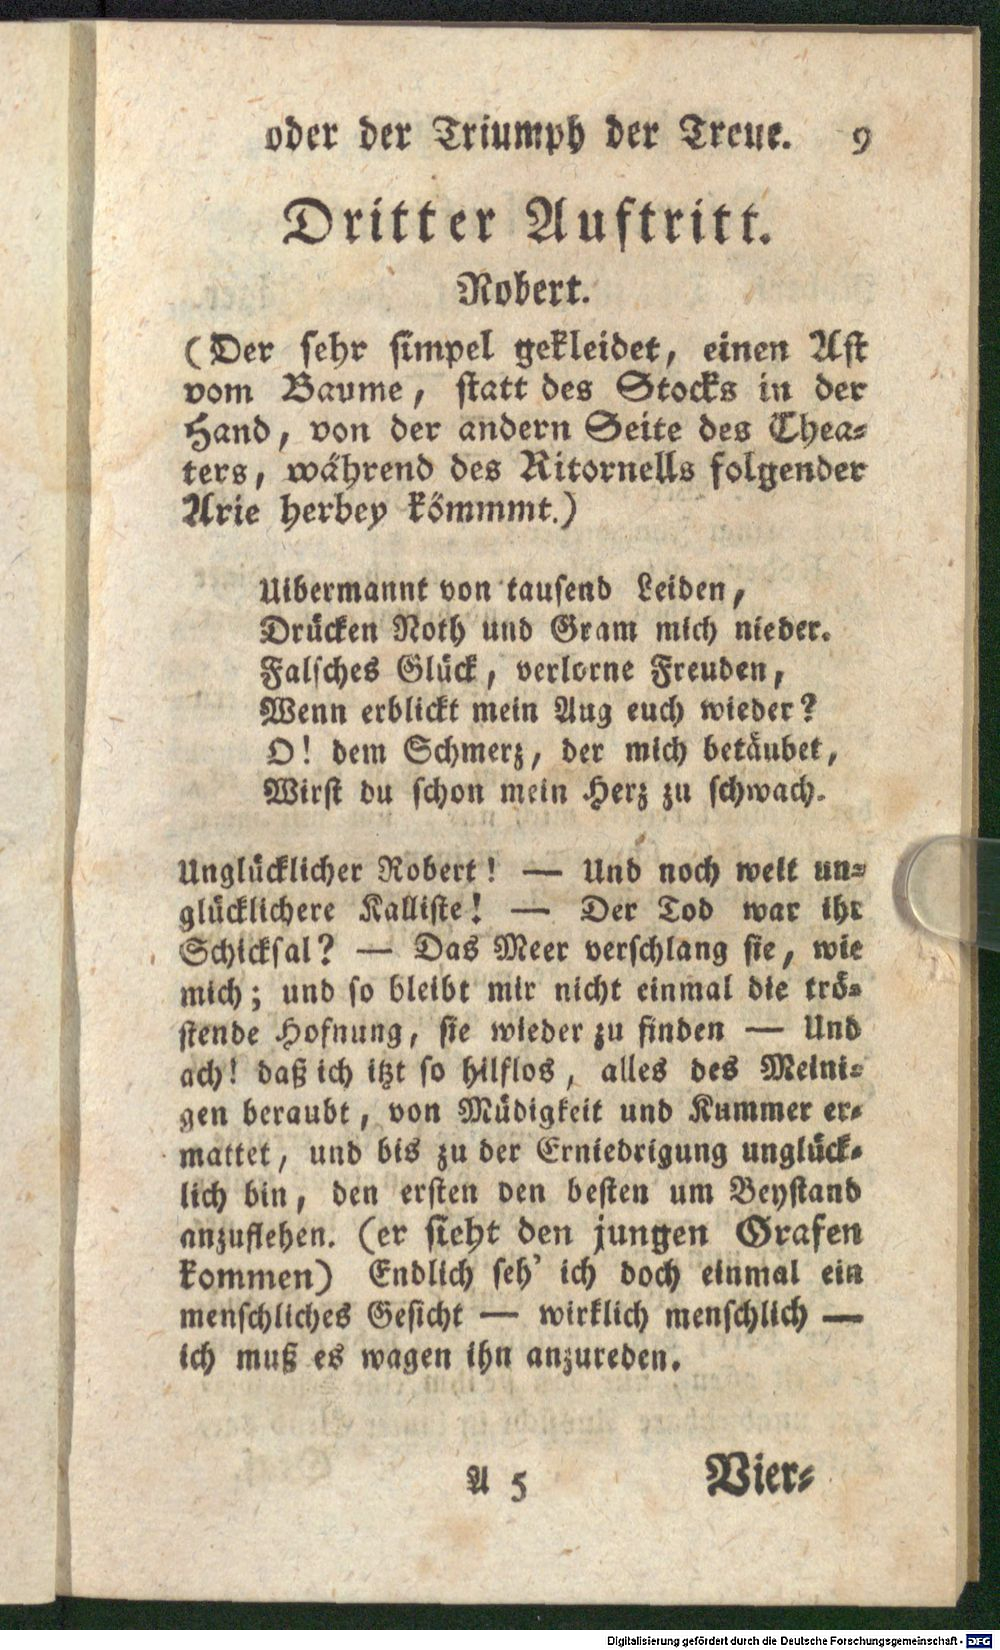 oder der Triumph der Treue. 9
Dritter Auftritt.
Robert.
(Der sehr simpel gekleidet, einen Ast
vom Baume, statt des Stocks in der
Hand, von der andern Seite des Thea-
ters, während des Ritornells folgender
Arie herbey kömmmt.)
Uibermannt von tausend Leiden,
Drücken Noth und Gram mich nieder.
Falsches Glück, verlorne Freuden,
Wenn erblickt mein Aug euch wieder?
O! dem Schmerz, der mich betäubet,
Wirst du schon mein Herz zu schwach.
Unglücklicher Robert! — Und noch weit un-
glücklichere Kalliste! — Der Tod war ihr
Schicksal? — Das Meer verschlang sie, wie
mich; und so bleibt mir nicht einmal die trö-
stende Hofnung, sie wieder zu finden — Und
ach! daß ich itzt so hilflos, alles des Meini-
gen beraubt, von Müdigkeit und Kummer er-
mattet, und bis zu der Erniedrigung unglück-
lich bin, den ersten den besten um Beystand
anzuflehen. (er sieht den jungen Grafen
kommen) Endlich seh' ich doch einmal ein
menschliches Gesicht — wirklich menschlich —
ich muß es wagen ihn anzureden.
A 5 Vier-
Digitalisierung gefördert durch die Deutsche Forschungsgemeinschaft - DFG